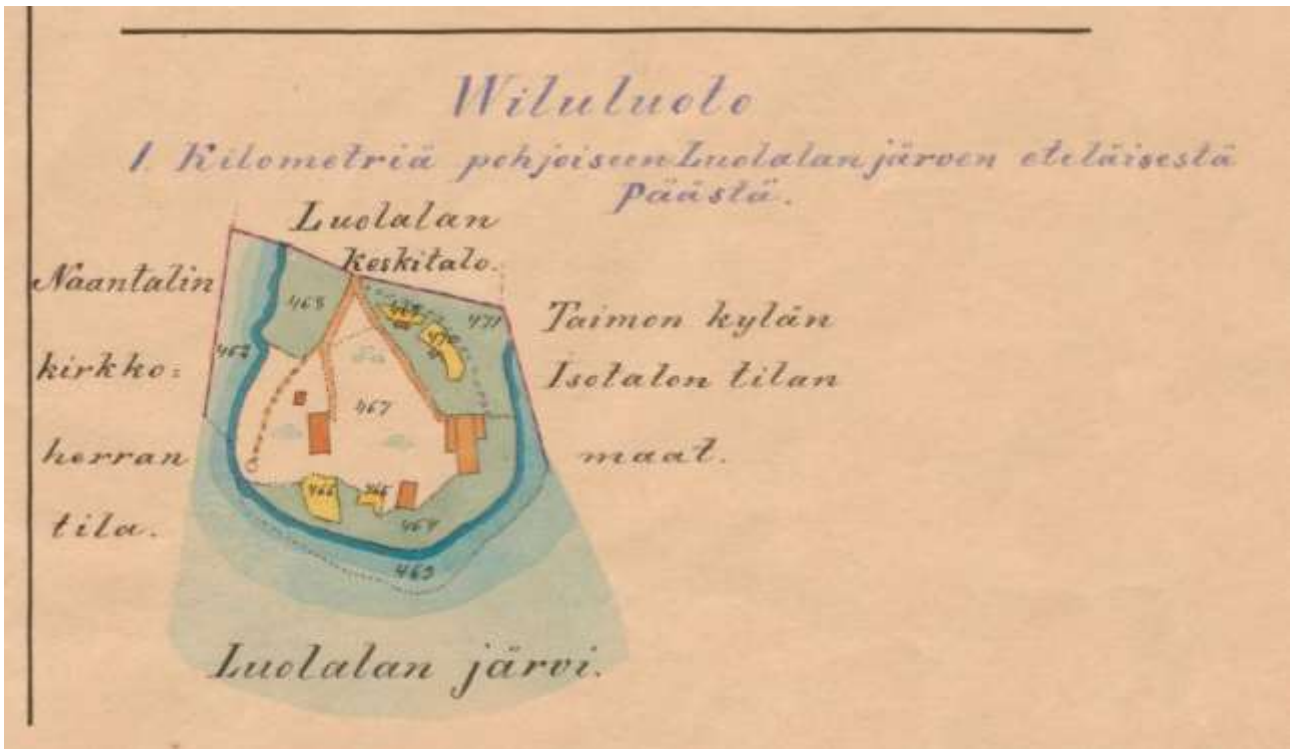 Wiluluoto
1. Kilometriä pohjoiseen Luolalan järven eteläisestä
päästä.
Luolalan
keskitalo.
Naantalin
kirkko=
herran
tila.
Taimon kylän
Isotalon tilan
maat.
468
471
470
462
467
466
464
463
Luolalan järvi.